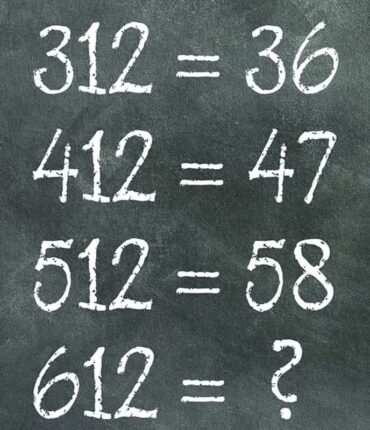 312 = 36
412 = 47
512 = 58
612 = ?